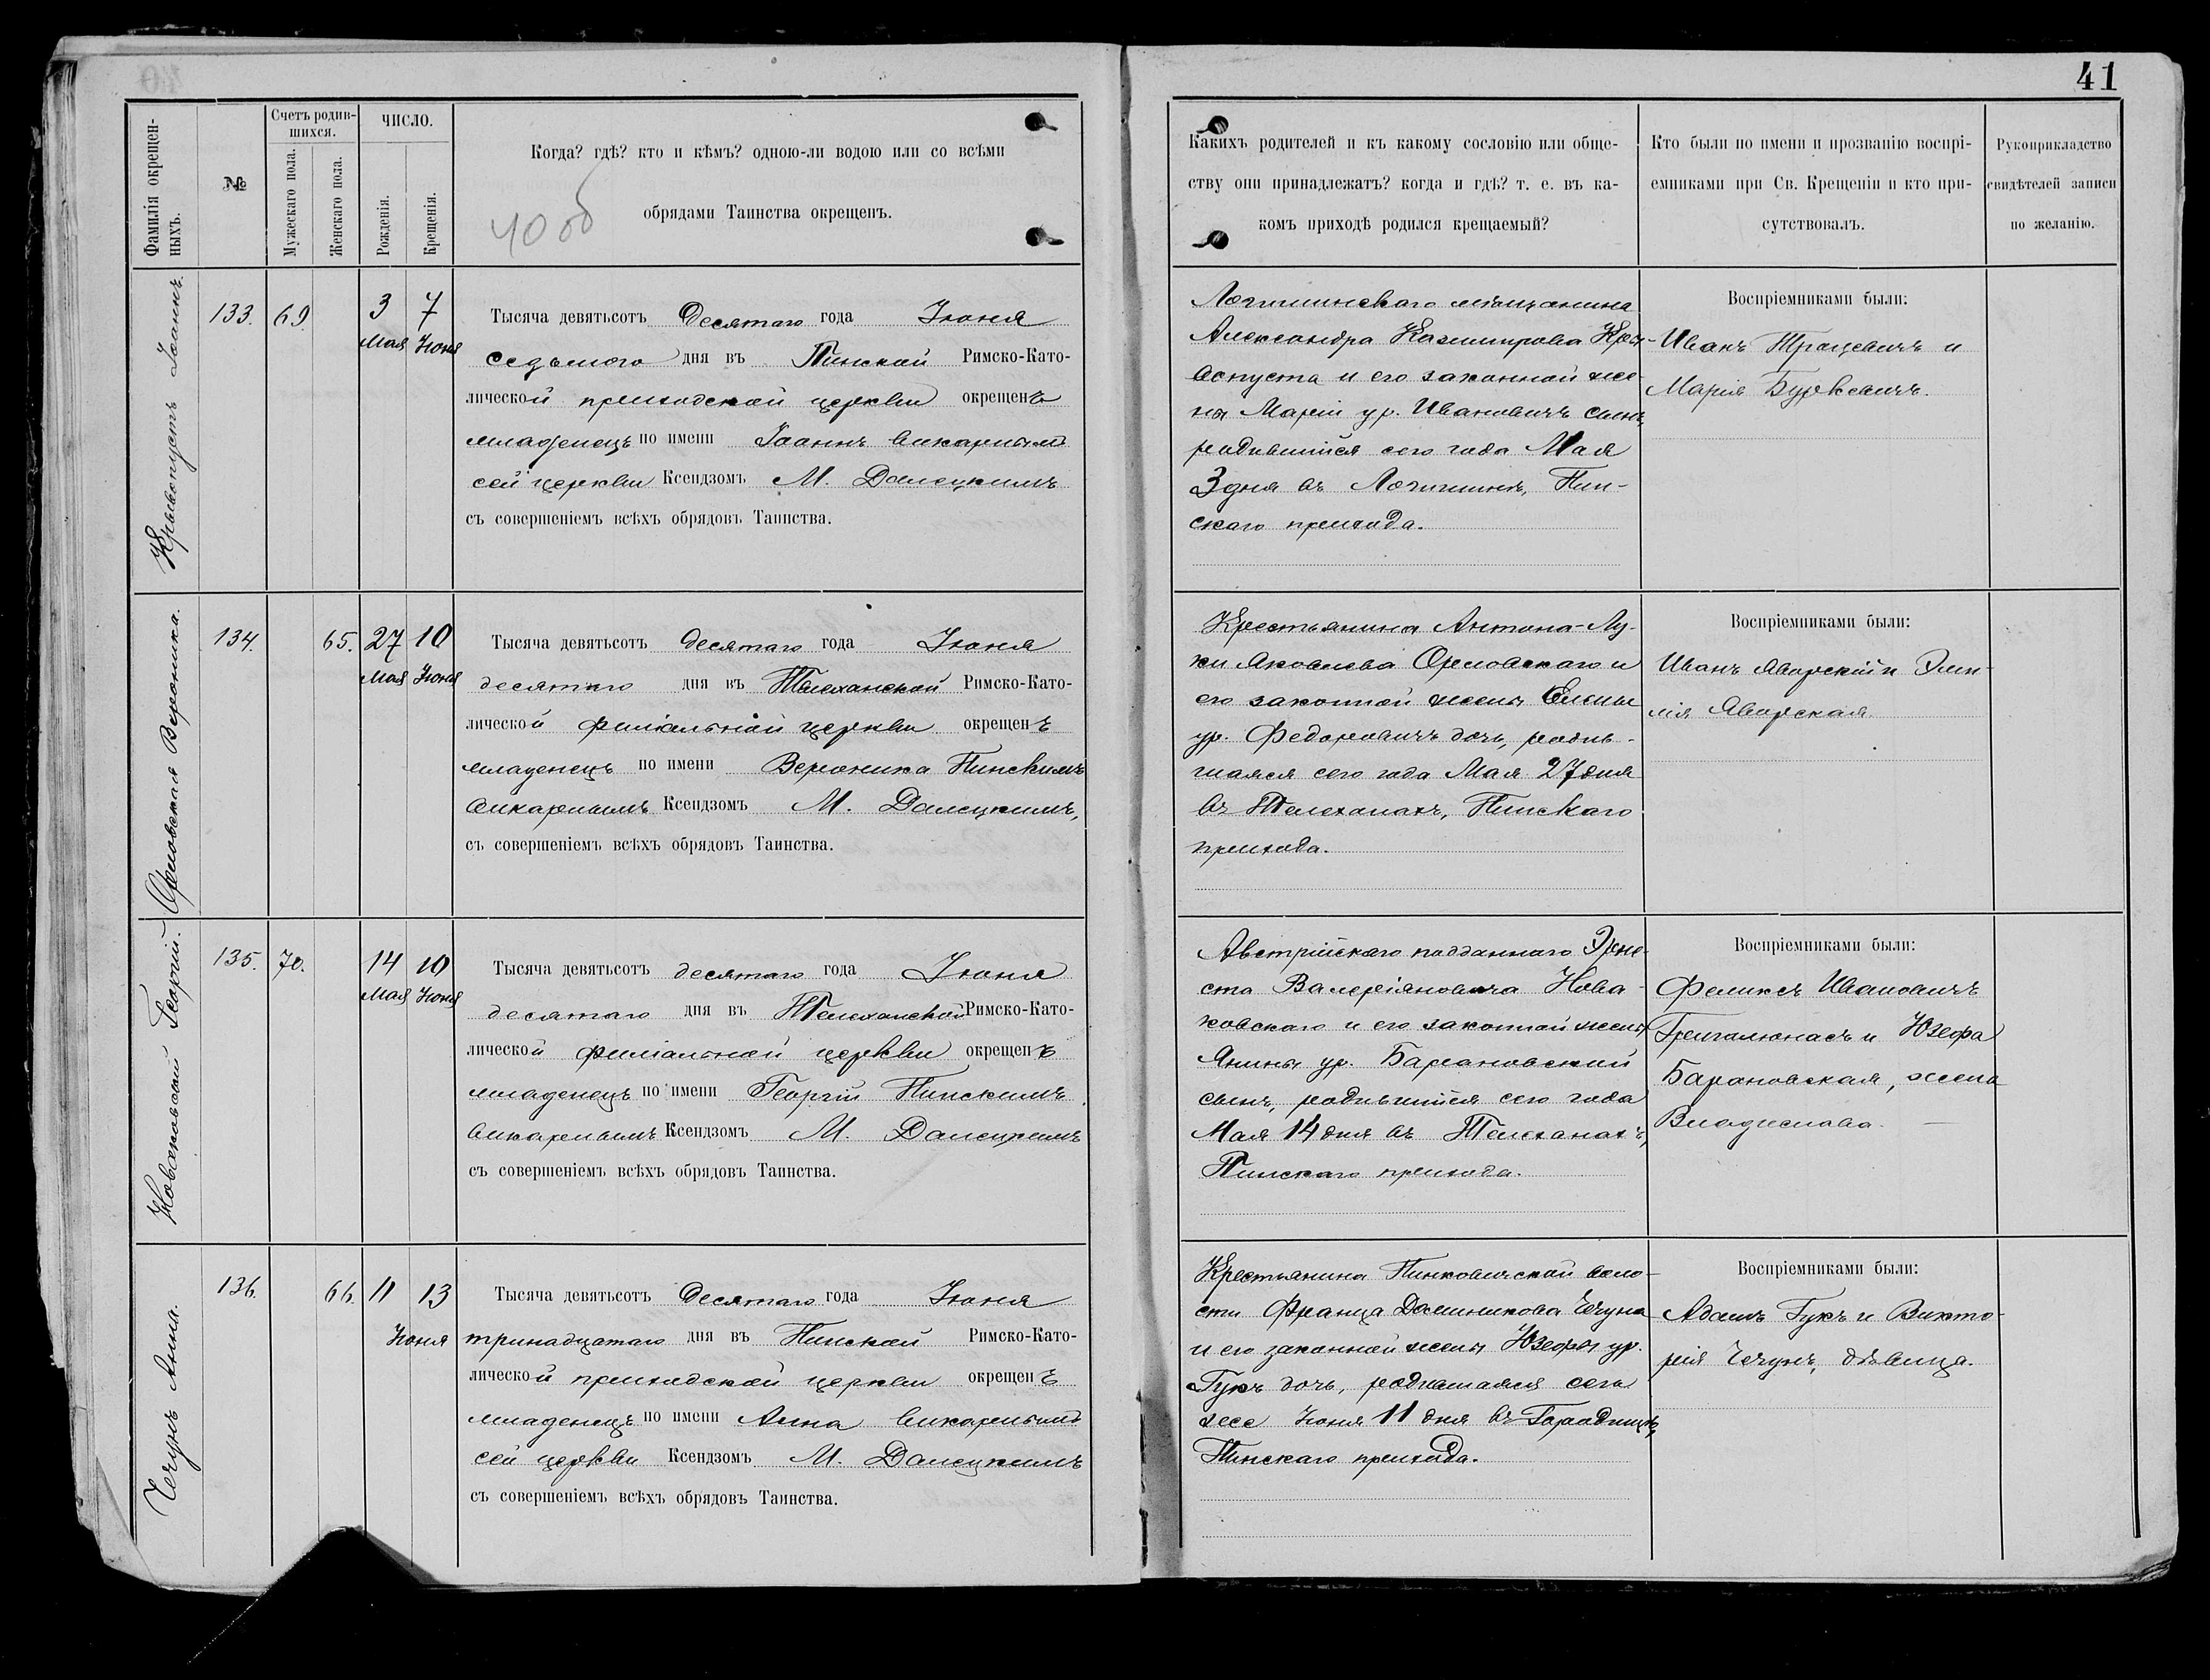 41
Фамилія окрещен-
ныхъ.
№
Счетъ родив-
шихся.
Мужескаго пола.
Женскаго пола.
ЧИСЛО.
Рожденія.
Крещенія.
Когда? гдѣ? кто и кѣмъ? одною-ли водою или со всѣми
обрядами Таинства окрещенъ.
40 об
Какихъ родителей и къ какому сословію или обще-
ству они принадлежатъ? когда и гдѣ? т. е. въ ка-
комъ приходѣ родился крещаемый?
Кто были по имени и прозванію воспрі-
емниками при Св. Крещеніи и кто при-
сутствовалъ.
Рукоприкладство
свидѣтелей записи
по желанію.
Крывопустъ Іоаннъ.
133. 69. 3 7
Мая Іюня
Тысяча девятьсотъ Десятаго года Іюня
седьмого дня въ Пинской Римско-Като-
лической приходской церкви окрещенъ
младенецъ по имени Іоаннъ викарнымъ
сей церкви Ксендзомъ М. Далецкимъ
съ совершеніемъ всѣхъ обрядовъ Таинства.
Логишинскаго мѣщанина
Александра Казимирова Кры-
вопуста и его законной же-
ны Маріи ур. Ивановичъ сынъ,
родившійся сего года Мая
3 дня въ Логишинѣ, Пин-
скаго прихода.
Воспріемниками были:
Иванъ Трацевичъ и
Марія Буркевичъ.
Орловская Вероника.
134. 65. 27 10
Мая Іюня
Тысяча девятьсотъ десятаго года Іюня
десятаго дня въ Телеханской Римско-Като-
лической филіальной церкви окрещенъ
младенецъ по имени Вероника Пинскимъ
викарнымъ Ксендзомъ М. Далецкимъ,
съ совершеніемъ всѣхъ обрядовъ Таинства.
Крестьянина Антона-Лу-
ки Яковлева Орловскаго и
его законной жены Елены
ур. Федоровичъ дочь, родив-
шаяся сего года Мая 27 дня
въ Телеханахъ, Пинскаго
прихода.
Воспріемниками были:
Иванъ Яворскій и Эми-
лія Яворская.
Новаковскій Георгій.
135. 70. 14 10
Мая Іюня
Тысяча девятьсотъ десятаго года Іюня
десятаго дня въ Телеханской Римско-Като-
лической филіальной церкви окрещенъ
младенецъ по имени Георгій Пинскимъ
викарнымъ Ксендзомъ М. Далецкимъ
съ совершеніемъ всѣхъ обрядовъ Таинства.
Австрійскаго подданнаго Эрне-
ста Валеріяновича Нова-
ковскаго и его законной жены
Янины ур. Барановский
сынъ, родившійся сего года
Мая 14 дня въ Телеханахъ,
Пинскаго прихода.
Воспріемниками были:
Феликсъ Ивановичъ
Григалюнасъ и Юзефа
Барановская, жена
Владислава.
Чечунъ Анна.
136. 66. 11 13
Іюня
Тысяча девятьсотъ Десятаго года Іюня
тринадцатаго дня въ Пинской Римско-Като-
лической приходской церкви окрещенъ
младенецъ по имени Анна викарнымъ
сей церкви Ксендзомъ М. Далецкимъ
съ совершеніемъ всѣхъ обрядовъ Таинства.
Крестьянина Пинковичской воло-
сти Франца Доминикова Чечуна
и его законной жены Юзефы ур.
Гукъ дочь, родившаяся сего
же Іюня 11 дня въ Городищѣ,
Пинскаго прихода.
Воспріемниками были:
Адамъ Гукъ и Викто-
рія Чечунъ, дѣвица.